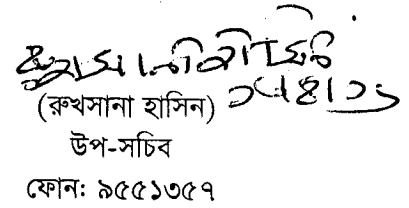 (রুখসানা হাসিন)
উপ-সচিব
ফোন: ৯৫৫১৩৫৭